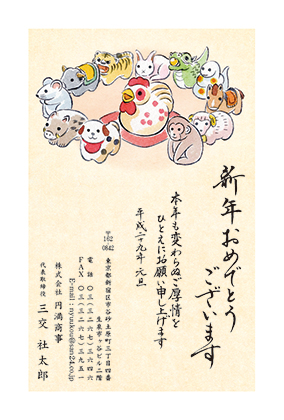 新年おめでとう
ございます
本年も変わらぬご厚情を
ひとえにお願い申し上げます
平成二十九年 元旦
〒
162
0842
東京都新宿区市谷砂土原町三丁目四番
生泉市ヶ谷ビル二階
電話 〇三(三二六七)三六四六
FAX 〇三(三二六七)三九五一
E-mail:nyuukou@san24.co.jp
株式会社 円満商事
代表取締役 三交 社太郎